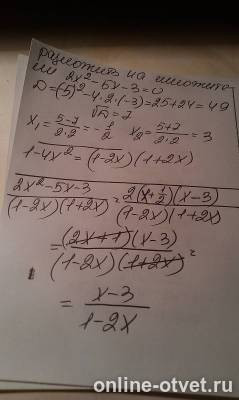 разложить на множите
ли 2x²-5x-3=0
D=(5)²-4·2·(-3)=25+24=49
√D=7
x₁=(5-7)/(2·2)=-1/2 x₂=(5+7)/(2·2)=3
1-4x²=(1-2x)(1+2x)
(2x²-5x-3)/((1-2x)(1+2x))=(2(x+1/2)(x-3))/((1-2x)(1+2x))
=((2x+1)(x-3))/((1-2x)(1+2x))=
=(x-3)/(1-2x)
online-otvet.ru